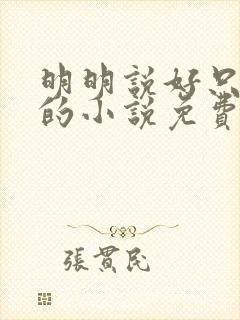 明明說好只
的小說免費
張貫民